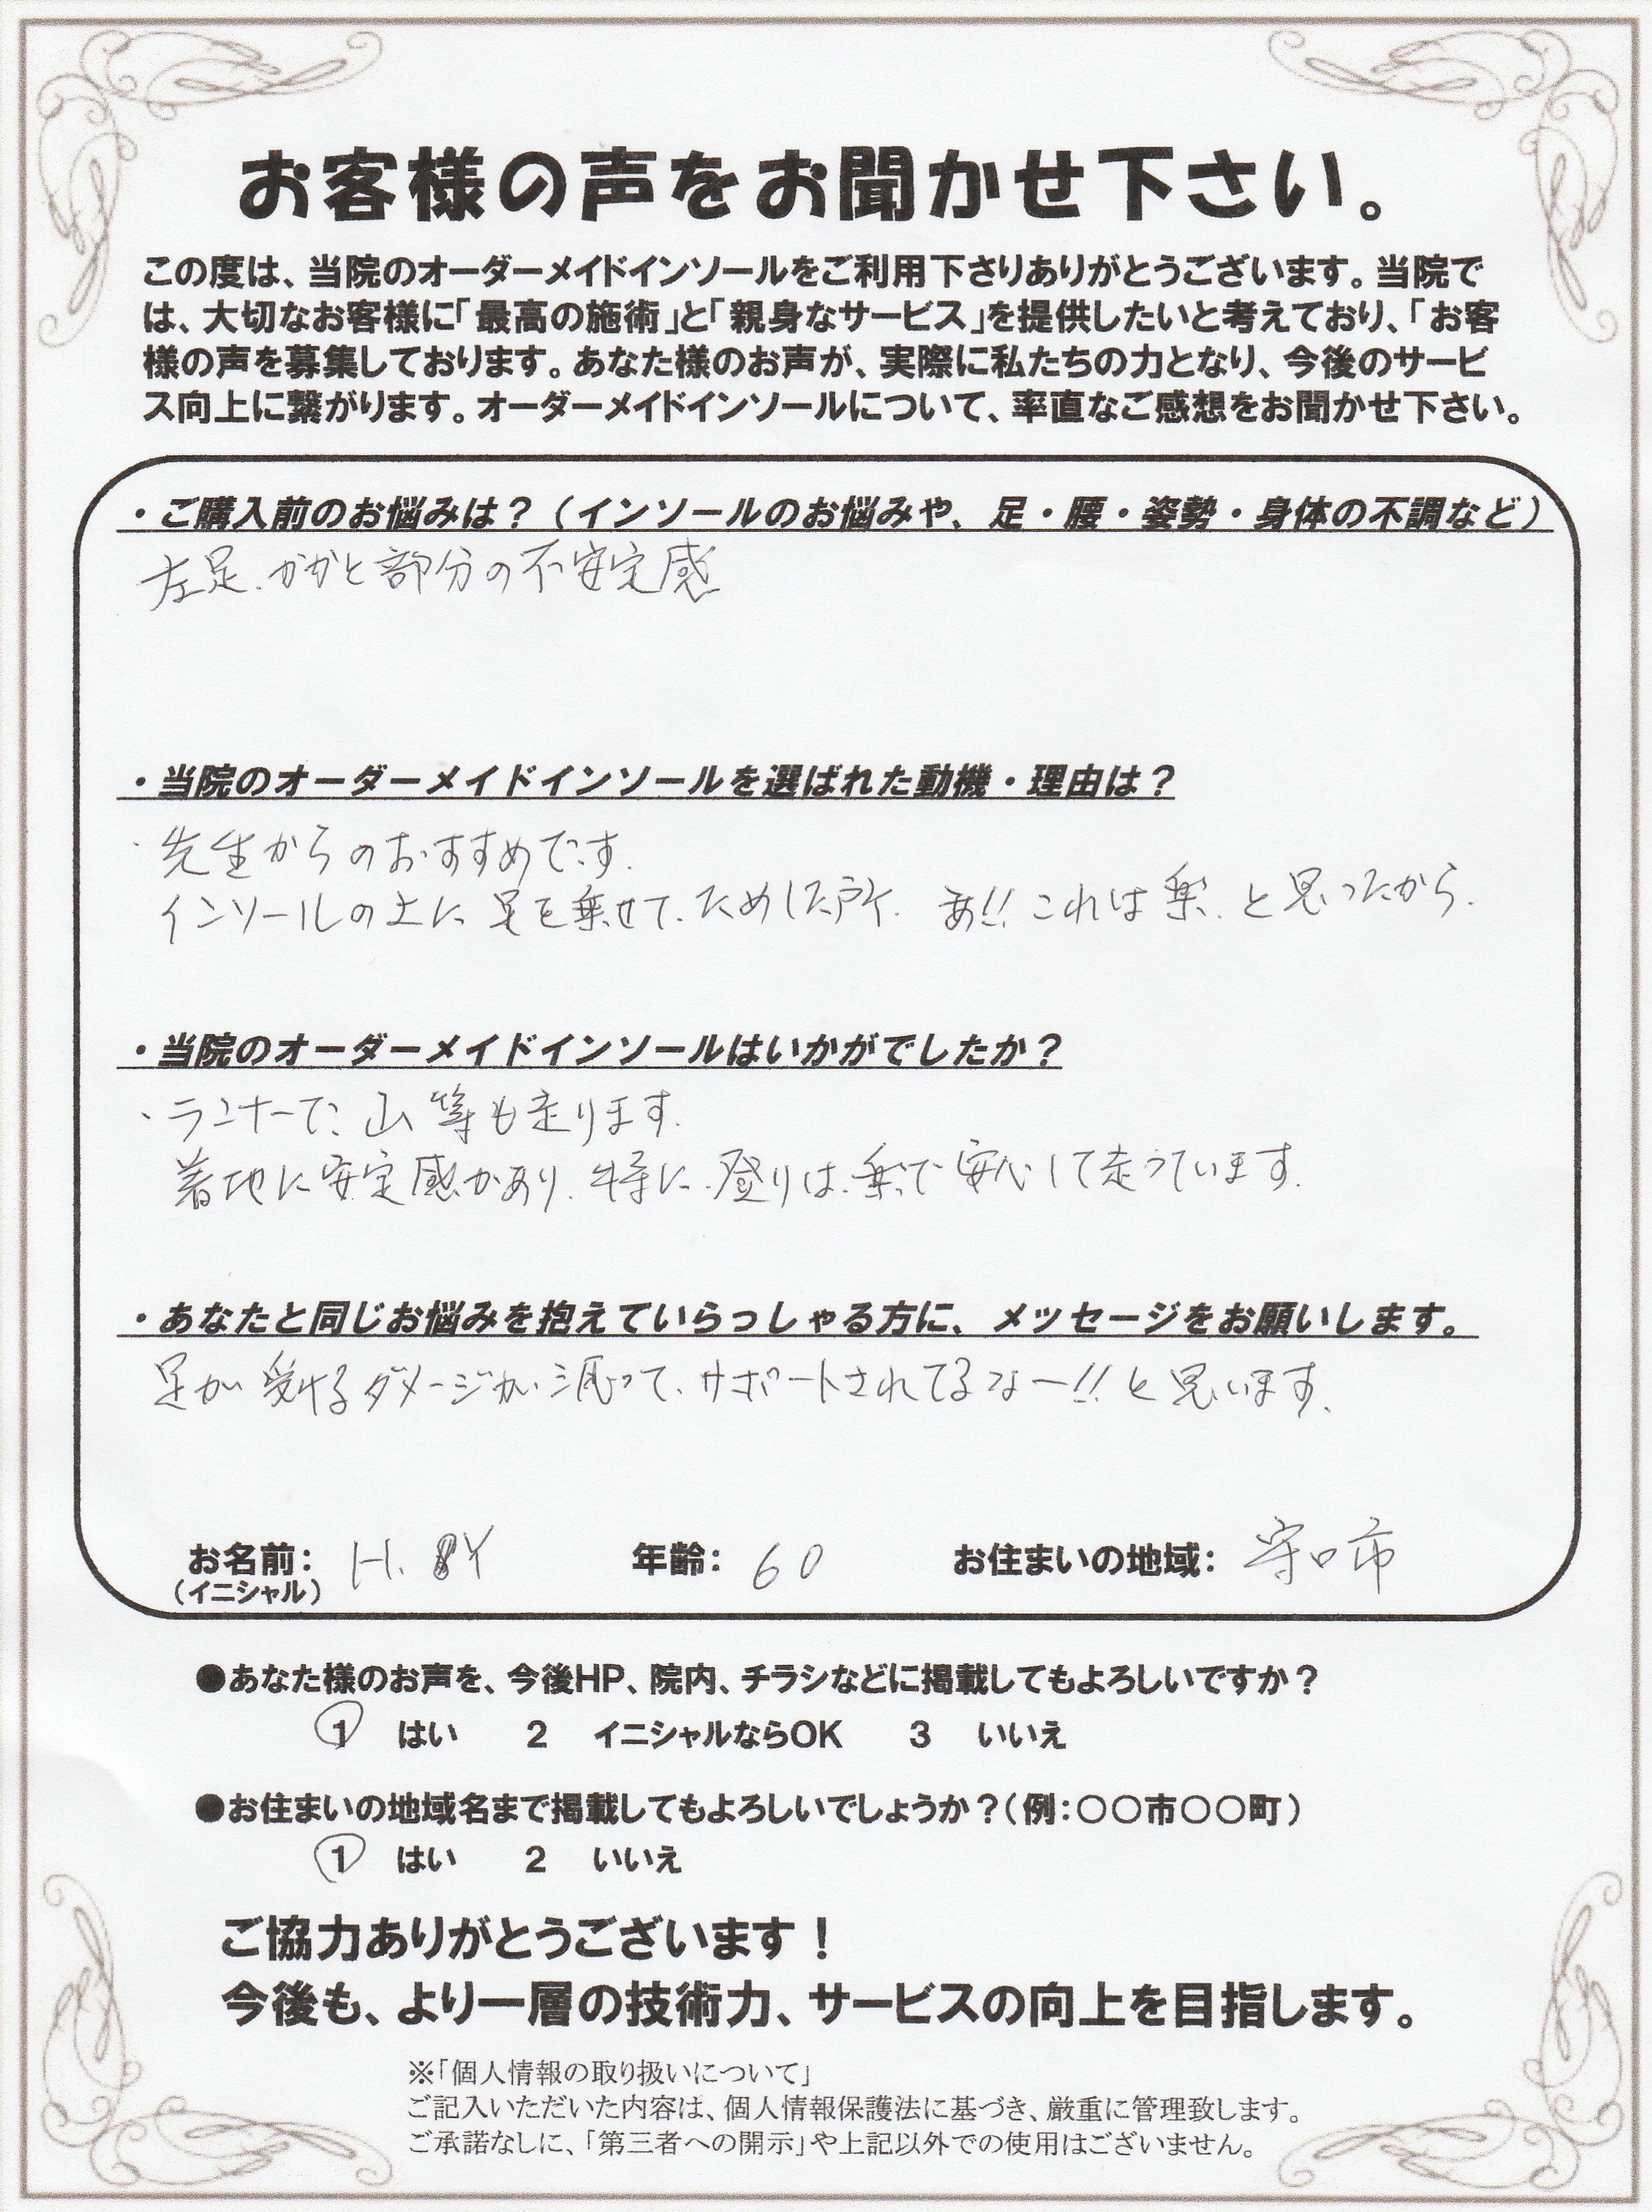 お客様の声をお聞かせ下さい。
この度は、当院のオーダーメイドインソールをご利用下さりありがとうございます。当院で
は、大切なお客様に「最高の施術」と「親身なサービス」を提供したいと考えており、「お客
様の声を募集しております。あなた様のお声が、実際に私たちの力となり、今後のサービ
ス向上に繋がります。オーダーメイドインソールについて、率直なご感想をお聞かせ下さい。
・ご購入前のお悩みは？（インソールのお悩みや、足・腰・姿勢・身体の不調など）
左足.かかと部分の不安定感
・当院のオーダーメイドインソールを選ばれた動機・理由は？
・先生からのおすすめです.
インソールの上に足を乗せて.ためした所. あ!!これは楽.と思ったから.
・当院のオーダーメイドインソールはいかがでしたか？
・ランナーで.山等も走ります.
着地に安定感があり.特に.登りは.楽で安心して走っています.
・あなたと同じお悩みを抱えていらっしゃる方に、メッセージをお願いします。
足が受けるダメージが.減って.サポートされてるなー!!と思います.
お名前： H. Y 年齢： 60 お住まいの地域： 守口市
（イニシャル）
●あなた様のお声を、今後HP、院内、チラシなどに掲載してもよろしいですか？
1 はい 2 イニシャルならOK 3 いいえ
●お住まいの地域名まで掲載してもよろしいでしょうか？（例：〇〇市〇〇町）
1 はい 2 いいえ
ご協力ありがとうございます！
今後も、より一層の技術力、サービスの向上を目指します。
※「個人情報の取り扱いについて」
ご記入いただいた内容は、個人情報保護法に基づき、厳重に管理致します。
ご承諾なしに、「第三者への開示」や上記以外での使用はございません。